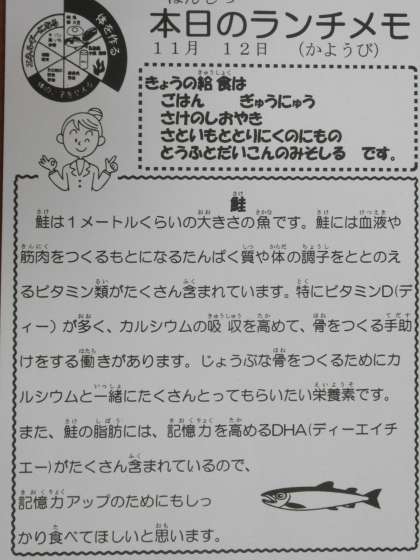 本日のランチメモ
体を作る
11月 12日 (かようび)
きょうの給食は
ごはん ぎゅうにゅう
さけのしおやき
さといもととりにくのにもの
とうふとだいこんのみそしる です。
鮭
鮭は1メートルくらいの大きさの魚です。鮭には血液や
筋肉をつくるもとになるたんぱく質や体の調子をととのえ
るビタミン類がたくさん含まれています。特にビタミンD(デ
ィー)が多く、カルシウムの吸収を高めて、骨をつくる手助
けをする働きがあります。じょうぶな骨をつくるためにカ
ルシウムと一緒にたくさんとってもらいたい栄養素です。
また、鮭の脂肪には、記憶力を高めるDHA(ディーエイチ
エー)がたくさん含まれているので、
記憶力アップのためにもしっ
かり食べてほしいと思います。